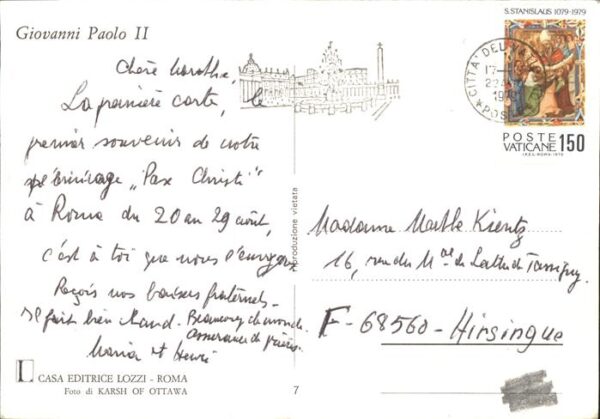 Giovanni Paolo II
Chère Marthe,
La première carte, le
premier souvenir de notre
pèlerinage "Pax Christi"
à Roma du 20 au 29 août,
c'est à toi que nous l'envoyons
Reçois nos baisers fraternels-
Il fait bien chaud. Beaucoup de monde.
assurance de prières.
Maria et Henri
CASA EDITRICE LOZZI - ROMA
Foto di KARSH OF OTTAWA
riproduzione vietata
7
S. STANISLAUS 1079-1979
CITTA' DEL
17
22
19
POS
POSTE
VATICANE 150
I.P.Z.S. ROMA 1979
Madame Marthe Kientz
16, rue du Mal de Lattre de Tassigny
F-68560-Hirsingue